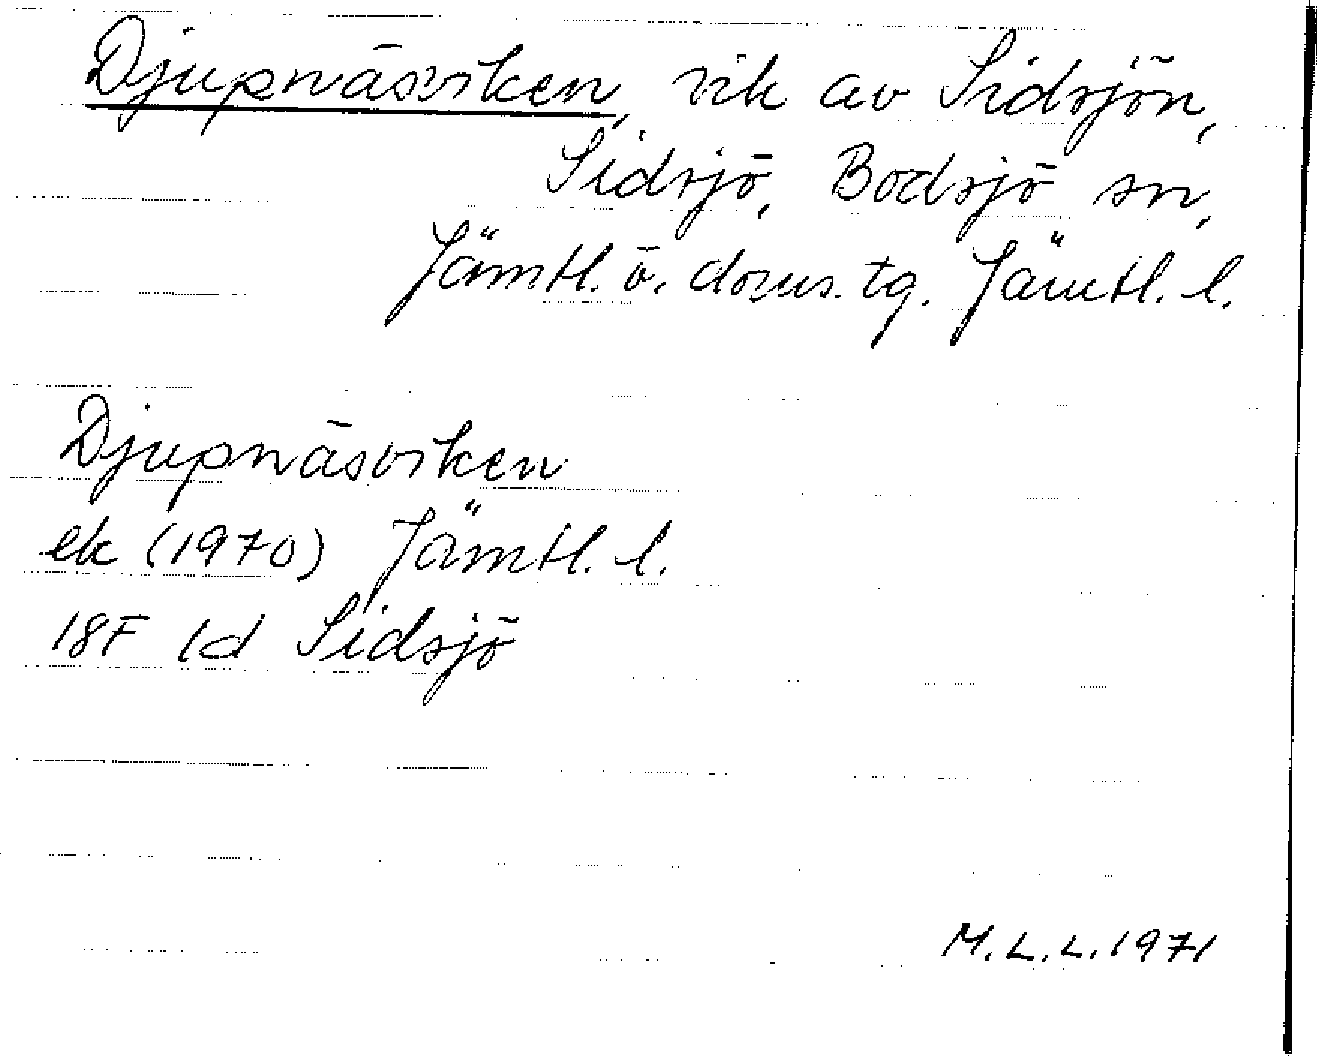 Djupnäsviken, vik av Sidsjön,
Sidsjö, Bodsjö sn,
Jämtl. ö. doms. tg. Jämtl. l.
Djupnäsviken
ek (1970) Jämtl. l.
18F 1d Sidsjö
M.L.L. 1971